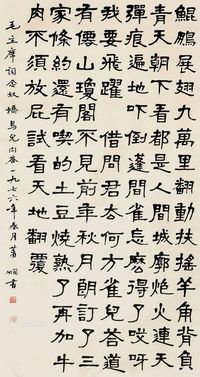 鯤鵬展翅九萬里翻動扶搖羊角背負
青天朝下看都是人間城廓炮火連天
彈痕遍地吓倒蓬間雀怎麼得了哎呀
我要飛躍 借問君去何方雀兒答道
有僊山瓊閣不見前年秋月朗訂了三
家條約還有喫的土豆燒熟了再加牛
肉不須放屁試看天地翻覆
毛主席詞念奴嬌鳥兒問答一九七六年春月蕭嫻書